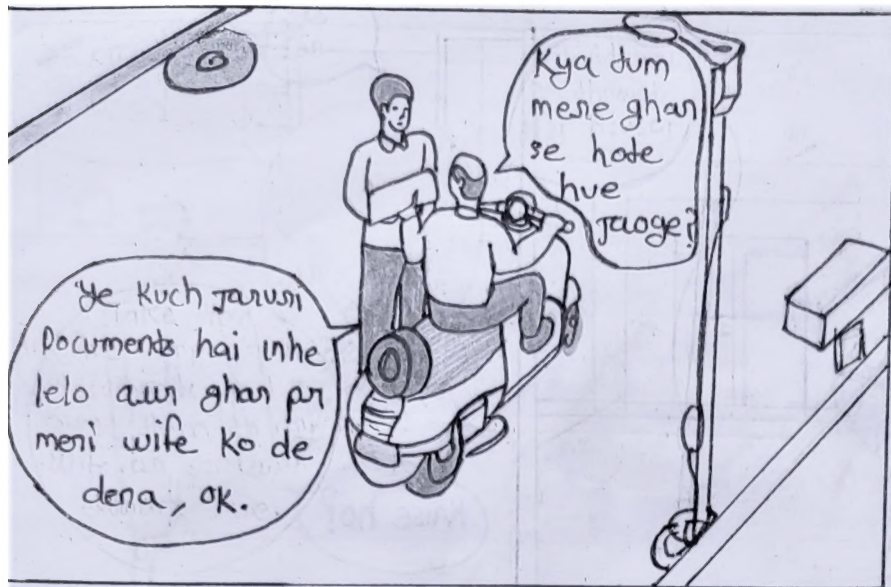 Kya tum
mere ghar
se hote
hue
Jaoge?
Ye Kuch Jaruri
Documents hai inhe
lelo aur ghar pr
meri wife ko de
dena, OK.